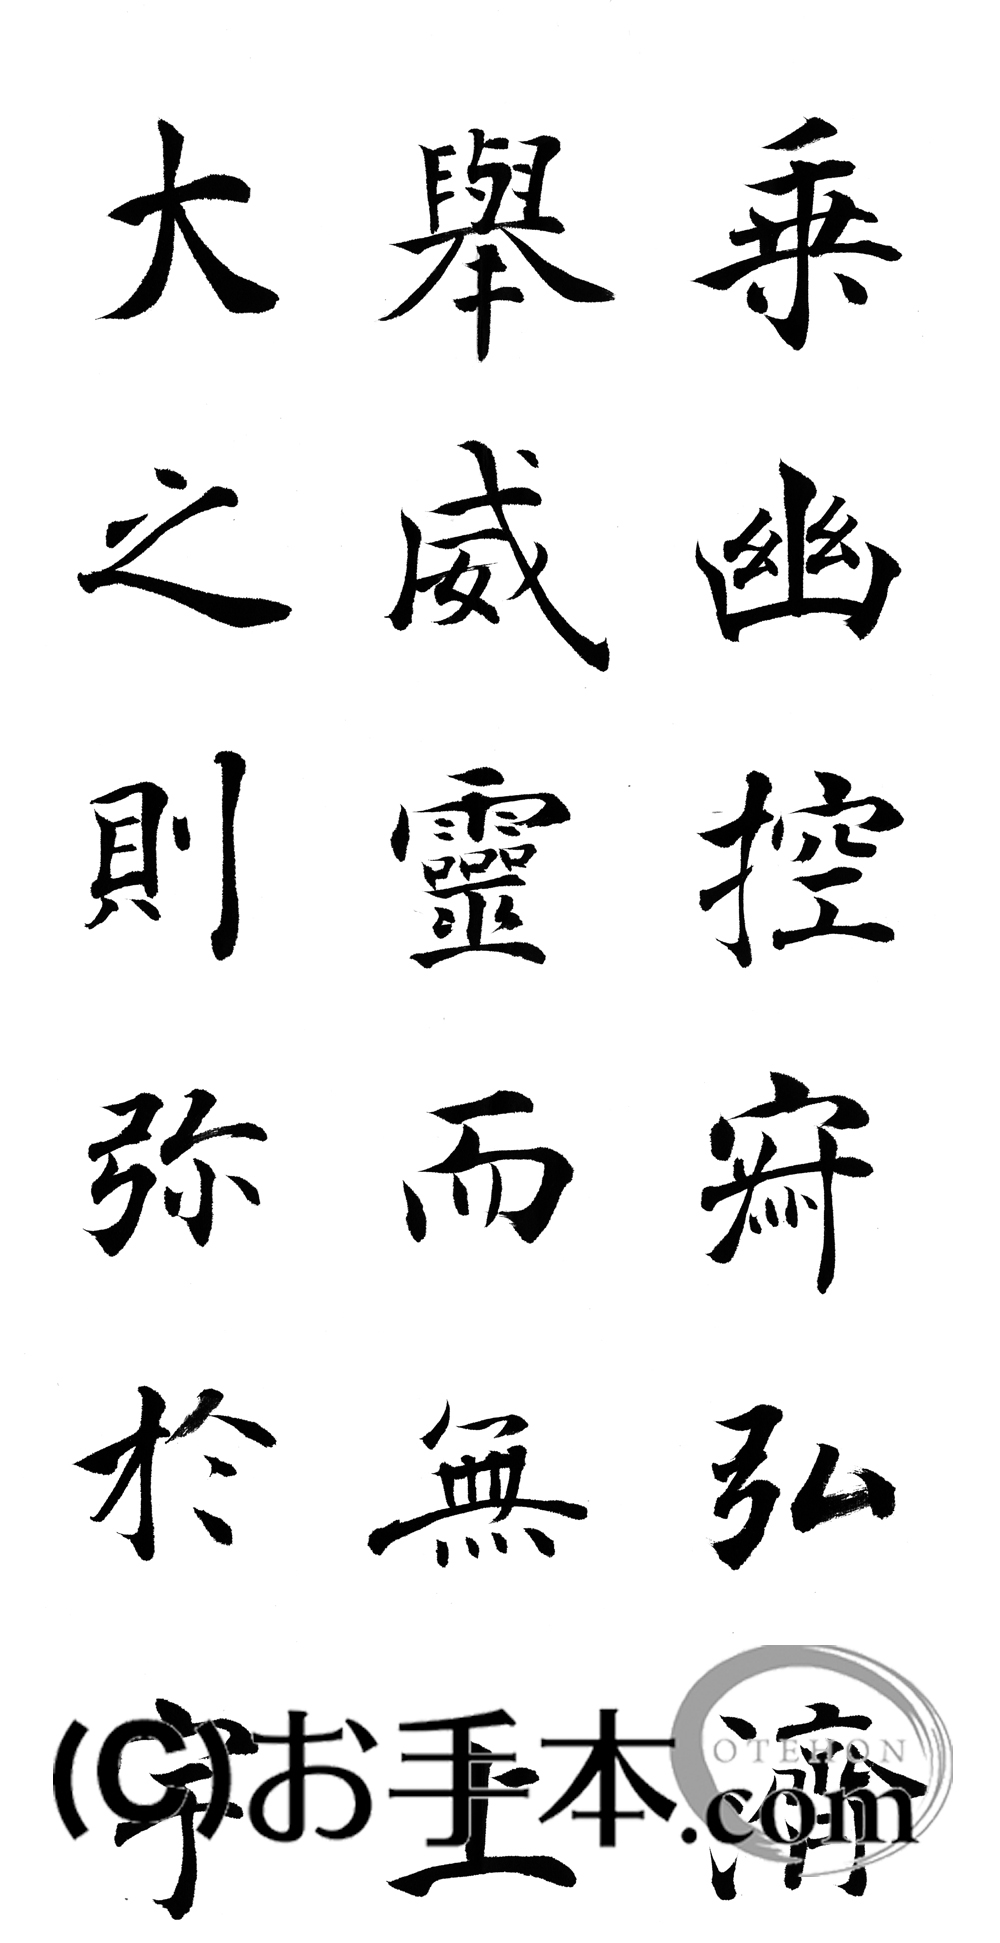 乗幽控寂弘濟
舉威靈而無上
大之則弥於宇
OTEHON
(C)お手本.com